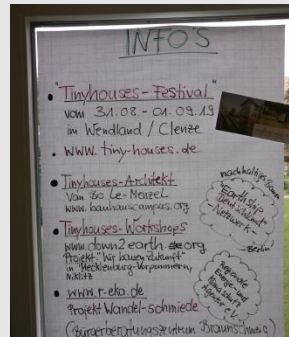 INFO'S
• "Tinyhouses-Festival"
vom 31.08. - 01.09.19
im Wendland / Clenze
• www.tiny-houses.de
• Tinyhouses-Architekt
Van Bo Le-Menzel
www.bauhauscampus.org
• Tinyhouses-Workshops
www.down2earth.org
Projekt "Wir bauen Zukunft"
in Mecklenburg-Vorpommern,
Nieklitz
• www.r-eka.de
Projekt Wandel-schmiede
(Bürgerberatungszentrum Braunschweig)
nachhaltiges Bauen
Earthship
Deutschland
Netzwerk
Berlin
Regionale
Energie- und
Klimaschutz
Agentur e.V.